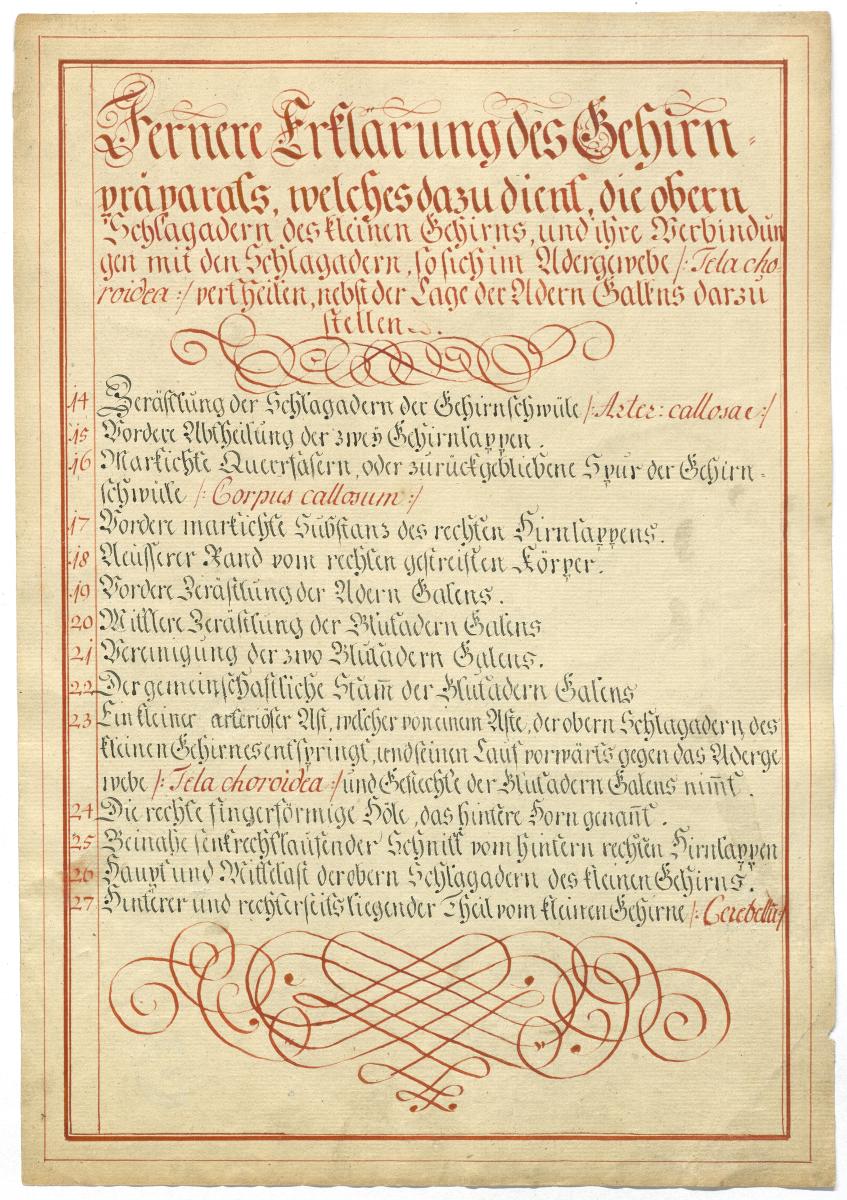 Fernere Erklärung des Gehirn-
präparats, welches dazu dient, die obern
Schlagadern des kleinen Gehirns, und ihre Verbindun
gen mit den Schlagadern, so sich im Adergewebe /: Tela cho-
roidea :/ vertheilen, nebst der Lage der Adern Galens darzu
stellen.
14 Zerästlung der Schlagadern der Gehirnschwüle /: Arter: callosae :/
15 Vordere Abtheilung der zweÿ Gehirnlappen.
16 Markichte Querrfasern, oder zurückgebliebene Spur der Gehirn-
schwüle /: Corpus callosum :/
17 Vordere markichte Substanz des rechten Hirnlappens.
18 Aeusserer Rand vom rechten gestreiften Körper.
19 Vordere Zerästlung der Adern Galens.
20 Mittlere Zerästlung der Blutadern Galens
21 Vereinigung der zwo Blutadern Galens.
22 Der gemeinschaftliche Stam̅ der Blutadern Galens
23 Ein kleiner arteriöser Ast, welcher von einem Aste, der obern Schlagadern, des
kleinen Gehirnes entspringt, und seinen Lauf vorwärts gegen das Aderge
webe /: Tela choroidea :/ und Geflechte der Blutadern Galens nim̅t.
24 Die rechte fingerförmige Höle, das hintere Horn genan̅t.
25 Beinahe senkrechtlaufender Schnitt vom hintern rechten Hirnlappen
26 Haupt und Mittelast der obern Schlagadern des kleinen Gehirns.
27 Hinterer und rechterseits liegender Theil vom kleinen Gehirne /: Cerebellū :/